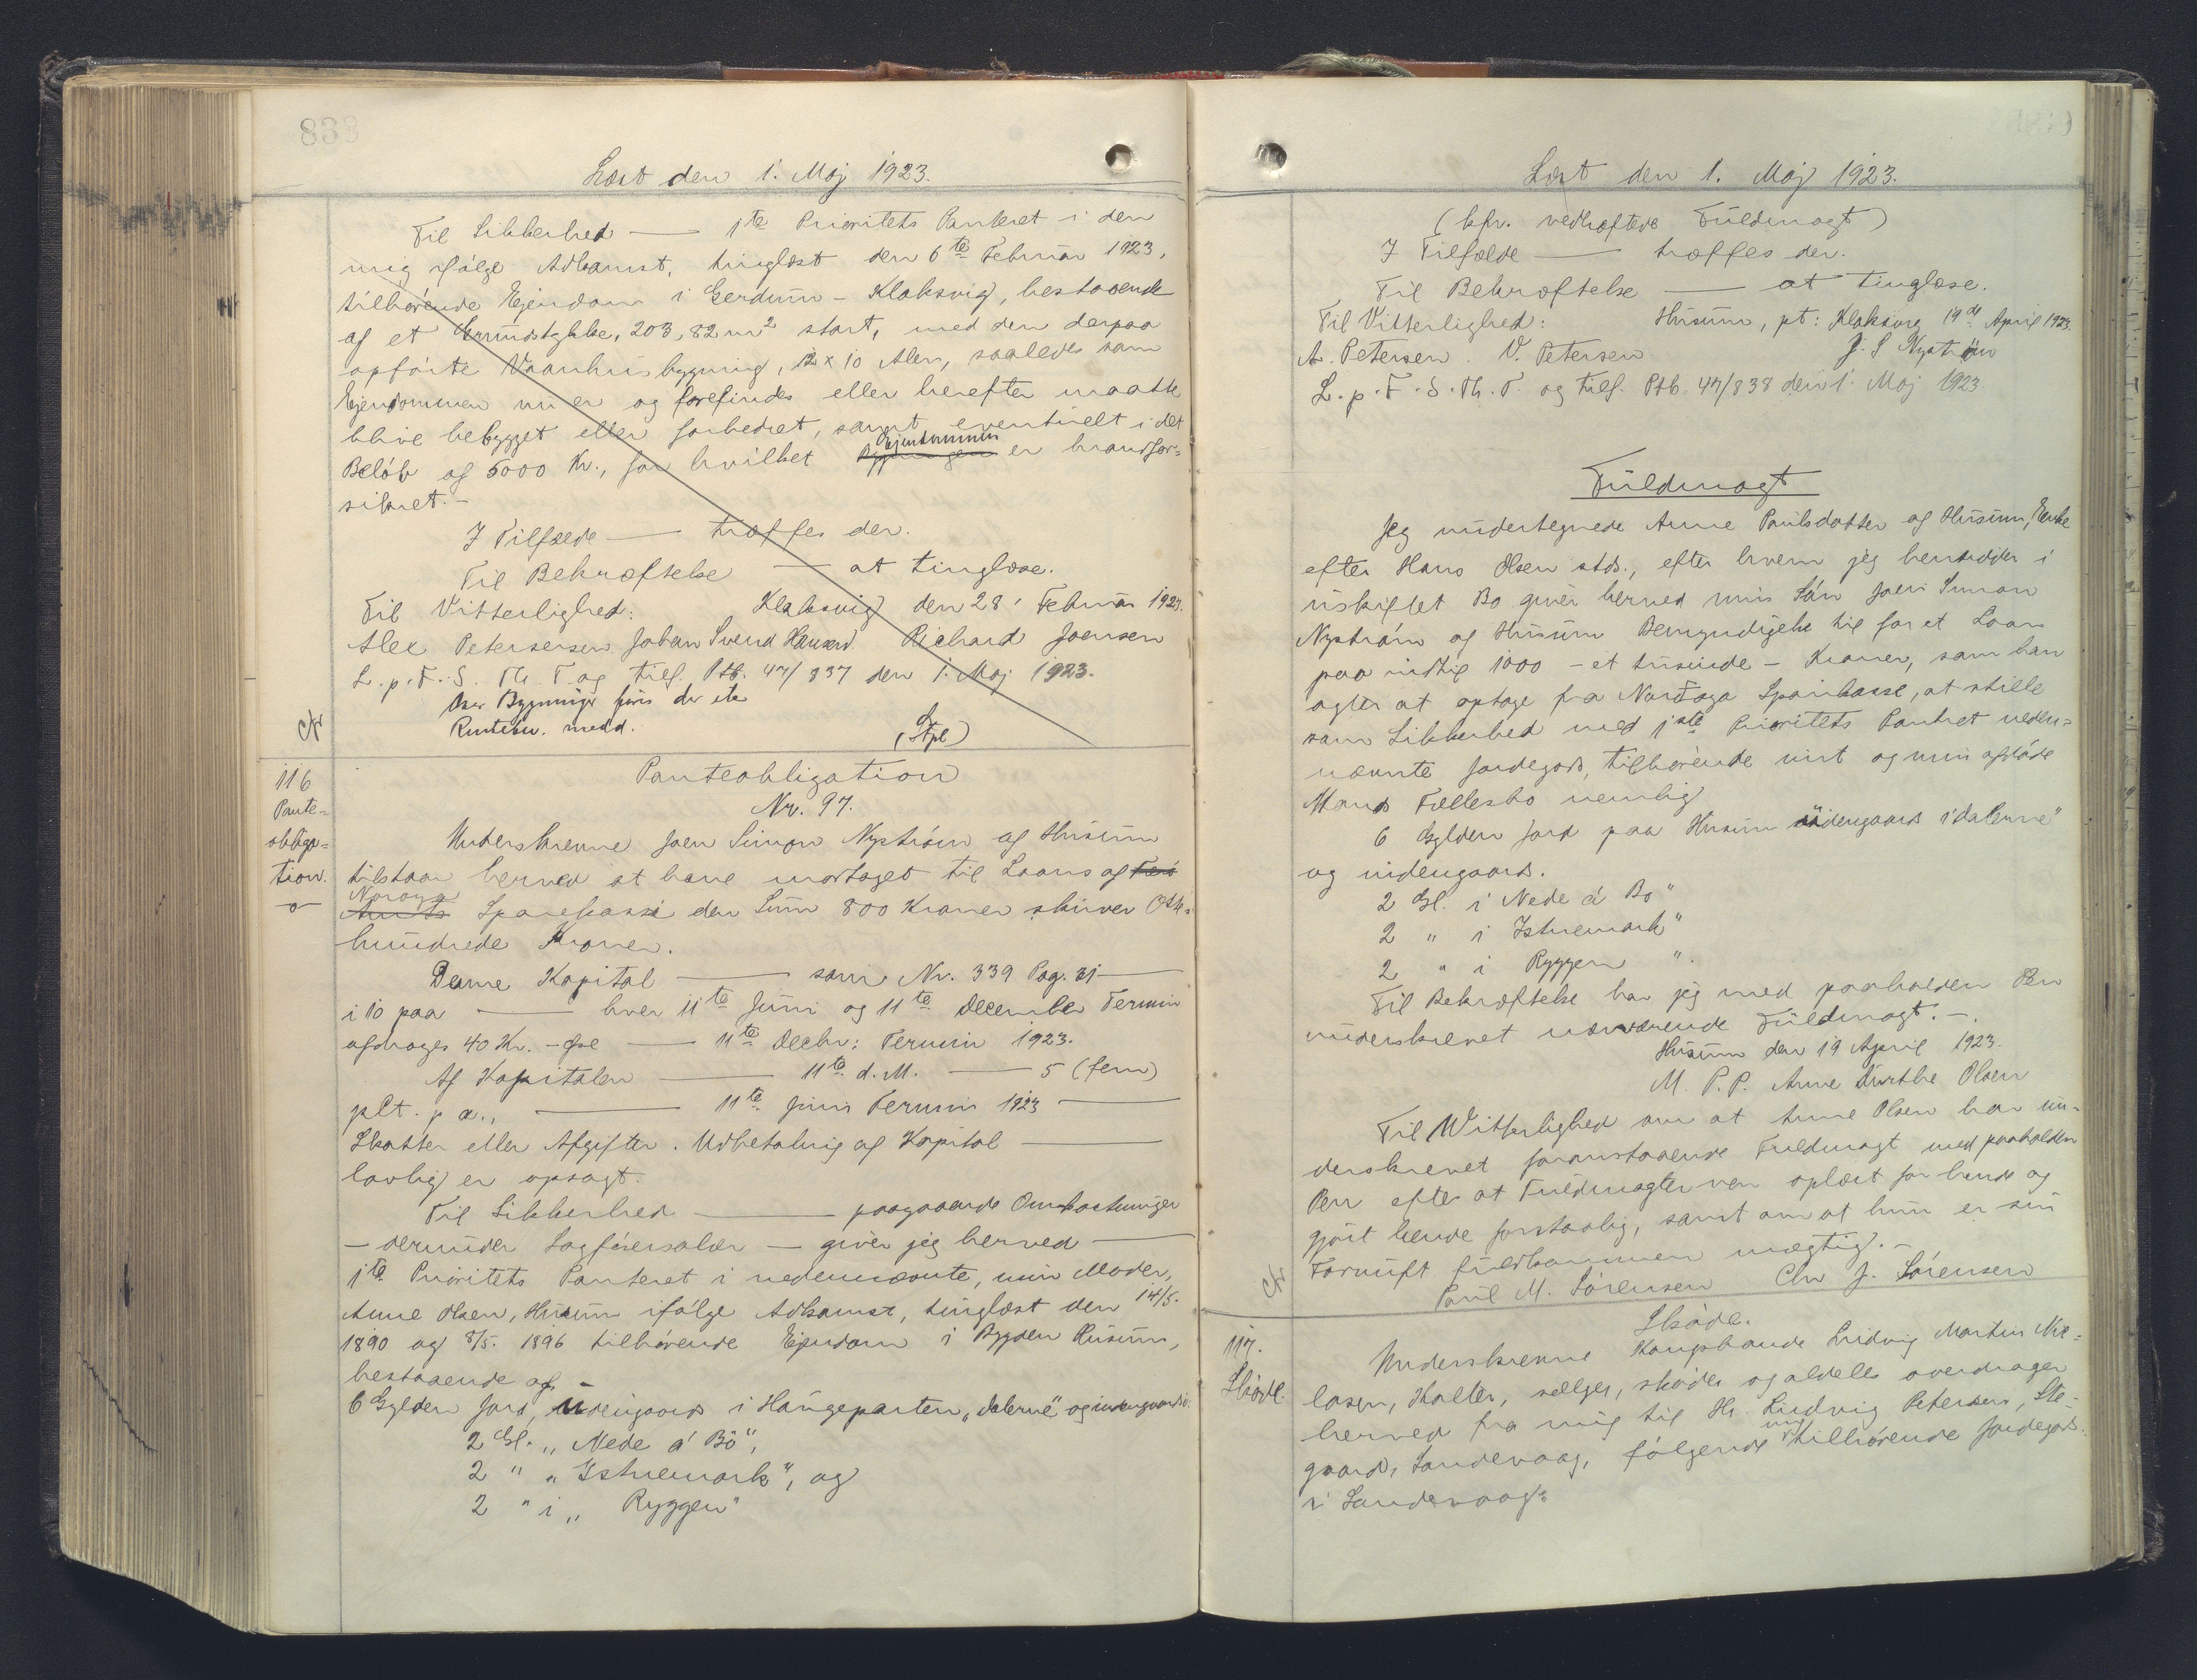 838
Læst den 1. Maj 1923.
Til Sikkerhed — 1te Prioritets Panteret i den
mig ifølge Adkomst, tinglæst den 6te Februar 1923,
tilhørende Ejendom i Gerdum - Klaksvig, bestaaende
af et Grundstykke, 203,82 m² stort, med den derpaa
opførte Vaanhusbygning, 12 x 10 Alen, saaledes som
Ejendommen nu er og forefindes eller herefter maatte
blive bebygget eller forbedret, samt eventuelt i det
Beløb af 5000 Kr., for hvilket Bygningen Ejendommen er brandfor=
sikret.-
I Tilfælde — træffes der.
Til Bekræftelse — at tinglæse.
Til Vitterlighed: Klaksvig den 28' Februar 1923.
Alex Petersersen. Johan Svend Hansen. Richard Joensen
L. p. F. S. Th. T. og tilf. Ptb. 47/837 den 1. Maj 1923.
Over Bygninger føris der ete
Rentebu. medd.
(Stpl)
Cfr
116
Pante=
obliga=
tion.
Panteobligation
Nr. 97.
Underskrevne Joen Simon Nyström af Husum
tilstaar herved at have modtaget til Laans af Færö
Amts Norøya Sparekasse den Sum 800 Kroner skriver Otte=
hundrede Kroner.
Denne Kapital — som Nr. 339 Pag. 31 —
i 10 paa — hver 11te Juni og 11te December Termin
afdrages 40 Kr. - Øre — 11te Decbr: Termin 1923.
Af Kapitalen — 11te d. M. — 5 (fem)
pCt. p a., — 11te Juni Termin 1923 —
Skatter eller Afgifter. Udbetaling af Kapital —
lovlig er opsagt.
Til Sikkerhed — paagaaende Omkostninger
— derunder Sagførersalær — giver jeg herved —
1te Prioritets Panteret i nedennævnte, min Moder,
Anne Olsen, Husum ifølge Adkomst, tinglæst den 14/5.
1890 og 8/5. 1896 tilhørende Ejendom i Bygden Husum,
bestaaende af -
6 Gylden Jord, udengaards i Haugeparten „dalerne" og indengaards i
2 Gl. „ Nede á Bö",
2 " „ Istuemark", og
2 " i „ Ryggen"
Læst den 1. Maj 1923.
(kfr. vedhæftede Fuldmagt)
I Tilfælde — træffes der.
Til Bekræftelse — at tinglæse.
Til Vitterlighed: Husum, pt: Klaksvig 19de April 1923.
A. Petersen. V. Petersen. J. S Nyström
L. p. F. S. Th. T. og tilf. Ptb. 47/838 den 1. Maj 1923.
Fuldmagt
Jeg undertegnede Anne Poulsdatter af Husum, Enke
efter Hans Olsen stds., efter hvem jeg hensidder i
uskiftet Bo giver herved min Søn Joen Simon
Nyström af Husum Bemyndigelse til for et Laan
paa indtil 1000 - et tusinde - Kroner, som han
agter at optage fra Nordoya Sparikasse, at stille
som Sikkerhed med 1ste Prioritets Pantret neden=
nævnte Jordegods, tilhørende mit og min afdøde
Mands Fællesbo nemlig
6 Gylden Jord paa Husum udengaards i "dalerne"
og indengaards.
2 Gl. i Nede á Bo"
2 " i Istuemark"
2 " i Ryggen ".
Til Bekræftelse har jeg med paaholden Pen
underskrevet nærværende Fuldmagt. -.
Husum den 19 April 1923.
M. P. P. Anne Dorthe Olsen
Til Vitterlighed om at Anne Olsen har un=
derskrevet foranstaaende Fuldmagt med paaholden
Pen efter at Fuldmagten var oplæst for hende og
gjort hende forstaalig, samt om at hun er sin
Fornuft fuldkommen mægtig. -
Poul M. Sörensen Chr J. Sörensen
Cfr
117.
Skøde.
Skøde.
Underskrevne Kongsbonde Ludvig Martin Nic=
lasen, Halter, sælger, skøder og aldeles overdrager
herved fra mig til Hr. Ludvig Petersen, Ste=
gaard, Sandevaag, følgende mig tilhørende Jordegods
i Sandevaag: